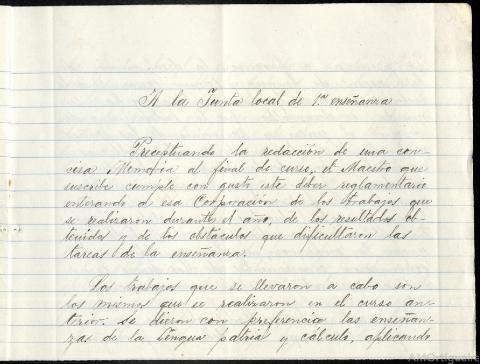 A la Junta local de 1.ª enseñanza
Preceptuando la redacción de una con-
cisa Memoria al final de curso, el Maestro que
suscribe cumple con gusto este deber reglamentario
enterando á esa Corporación de los trabajos que
se realizaron durante el año, de los resultados ob-
tenidos y de los obstáculos que dificultaron las
tareas de la enseñanza.
Los trabajos que se llevaron a cabo son
los mismos que se realizaron en el curso an-
terior. Se dieron con preferencia las enseñan-
zas de la Lengua patria y cálculo, aplicando